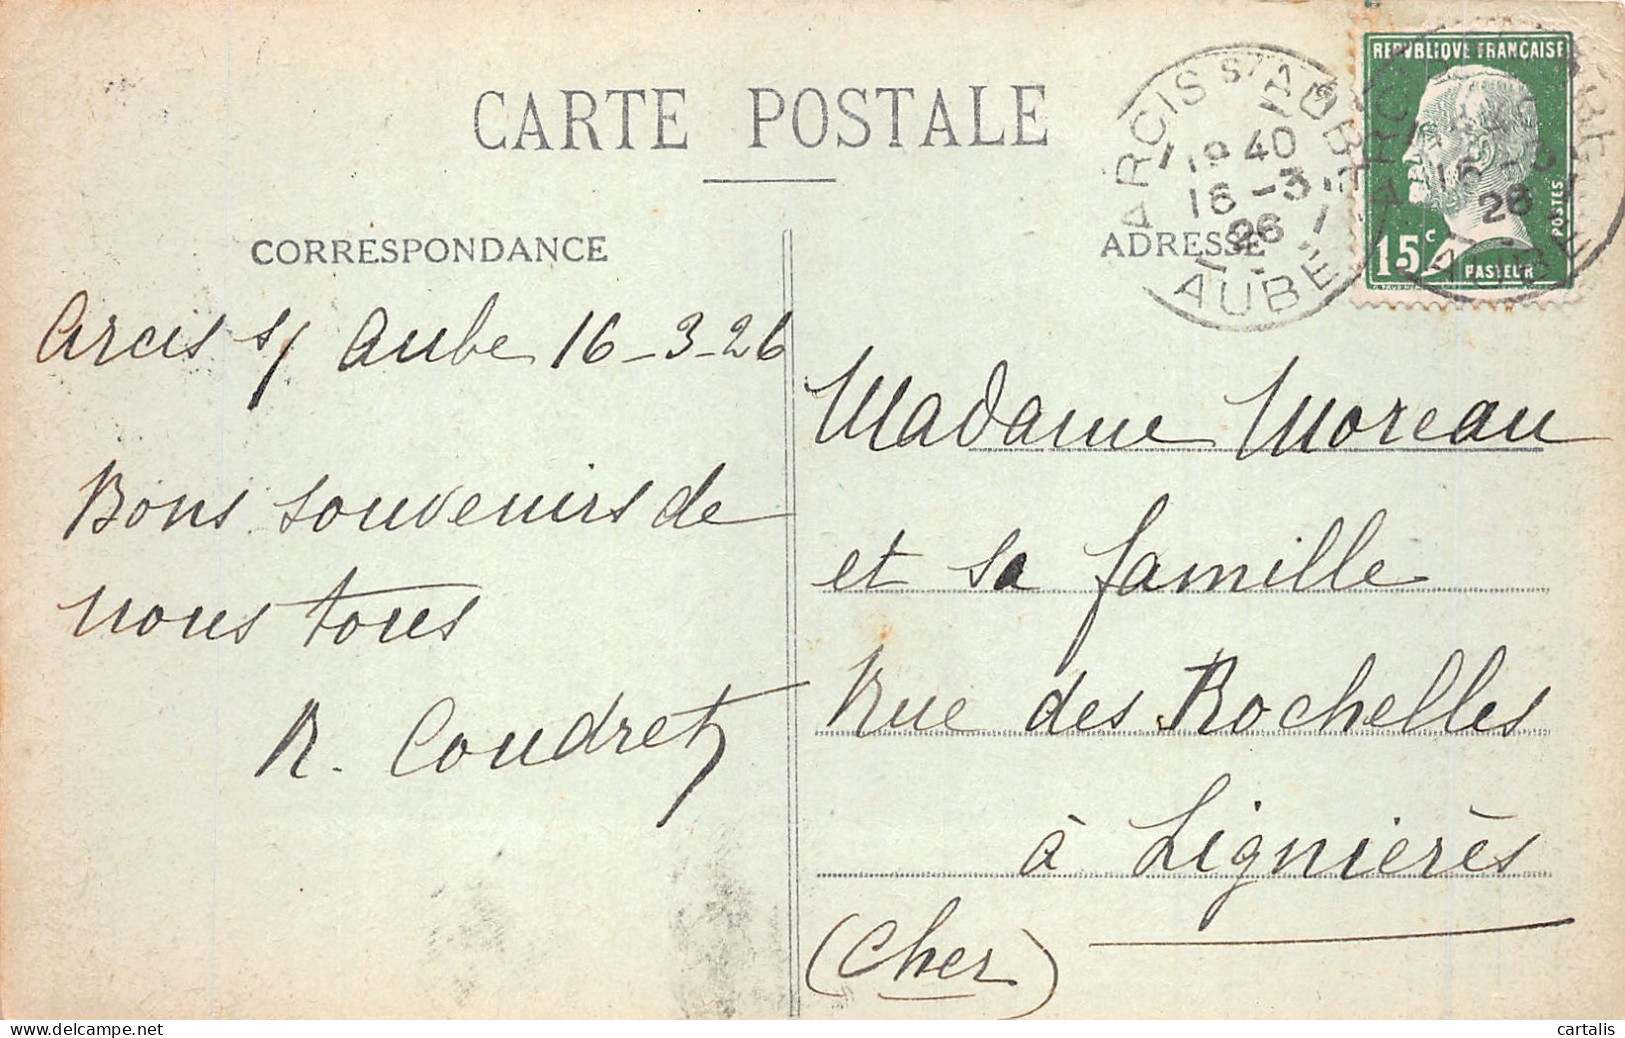 CARTE POSTALE
CORRESPONDANCE
Arcis s/ Aube 16-3-26
Bons souvenirs de
nous tous
R. Coudret
ADRESSE
Madame Moreau
et sa famille
Rue des Rochelles
à Lignières
(Cher)
ARCIS S/ AUBE
19 40
16 -3
26
AUBE
REPUBLIQUE FRANÇAISE
POSTES
15c
PASTEUR
16 -3
26
AUBE
delcampe.net
cartalis